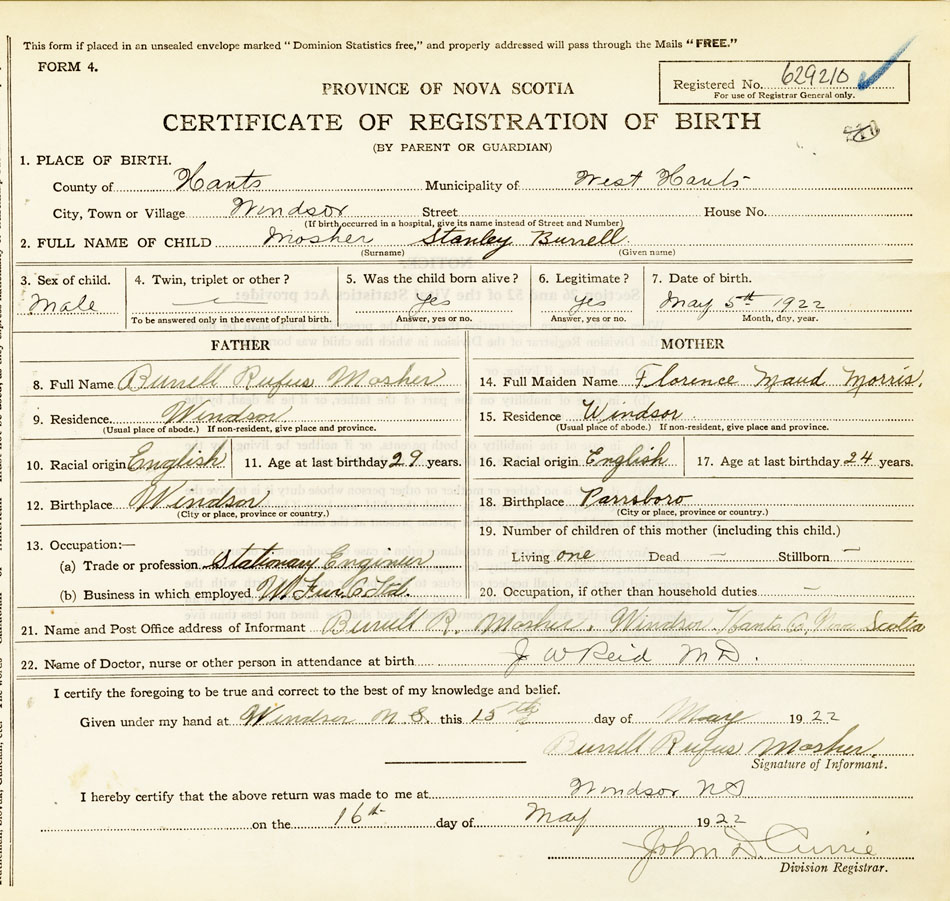 This form if placed in an unsealed envelope marked "Dominion Statistics free," and properly addressed will pass through the Mails "FREE."
FORM 4.
Registered No. 629210
For use of Registrar General only.
PROVINCE OF NOVA SCOTIA
CERTIFICATE OF REGISTRATION OF BIRTH
(BY PARENT OR GUARDIAN)
1. PLACE OF BIRTH.
County of Hants Municipality of West Hants
City, Town or Village Windsor Street House No.
(If birth occurred in a hospital, give its name instead of Street and Number)
2. FULL NAME OF CHILD Mosher Stanley Burrell
(Surname) (Given name)
3. Sex of child. 4. Twin, triplet or other? 5. Was the child born alive? 6. Legitimate? 7. Date of birth.
Male — Yes Yes May 5th 1922
To be answered only in the event of plural birth. Answer, yes or no. Answer, yes or no. Month, day, year.
FATHER
8. Full Name Burrell Rufus Mosher
9. Residence Windsor
(Usual place of abode.) If non-resident, give place and province.
10. Racial origin English 11. Age at last birthday 29 years.
12. Birthplace Windsor
(City or place, province or country.)
13. Occupation:—
(a) Trade or profession Stationary Engineer
(b) Business in which employed W. Fur. Co Ltd.
MOTHER
14. Full Maiden Name Florence Maud Morris.
15. Residence Windsor
(Usual place of abode.) If non-resident, give place and province.
16. Racial origin English 17. Age at last birthday 24 years.
18. Birthplace Parrsboro
(City or place, province or country.)
19. Number of children of this mother (including this child.)
Living one Dead — Stillborn —
20. Occupation, if other than household duties —
21. Name and Post Office address of Informant Burrell R. Mosher, Windsor Hants Co, Nova Scotia
22. Name of Doctor, nurse or other person in attendance at birth J W Reid M D.
I certify the foregoing to be true and correct to the best of my knowledge and belief.
Given under my hand at Windsor N. S. this 15th day of May 1922
Burrell Rufus Mosher
Signature of Informant.
I hereby certify that the above return was made to me at Windsor N S
on the 16th day of May 1922
John D. Currie
Division Registrar.